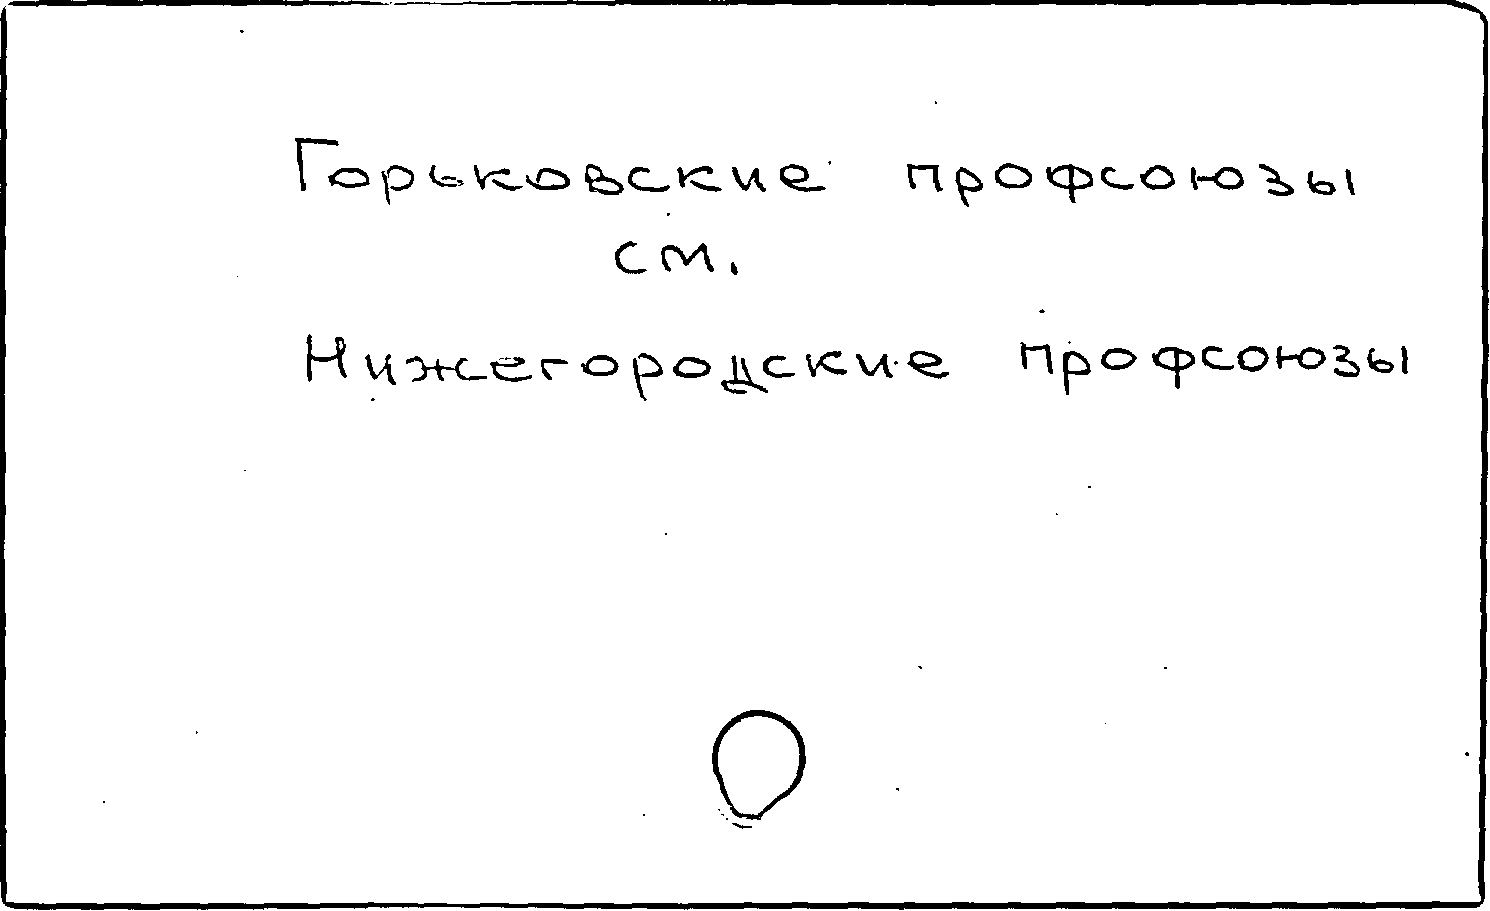 Горьковские профсоюзы
см.
Нижегородские профсоюзы